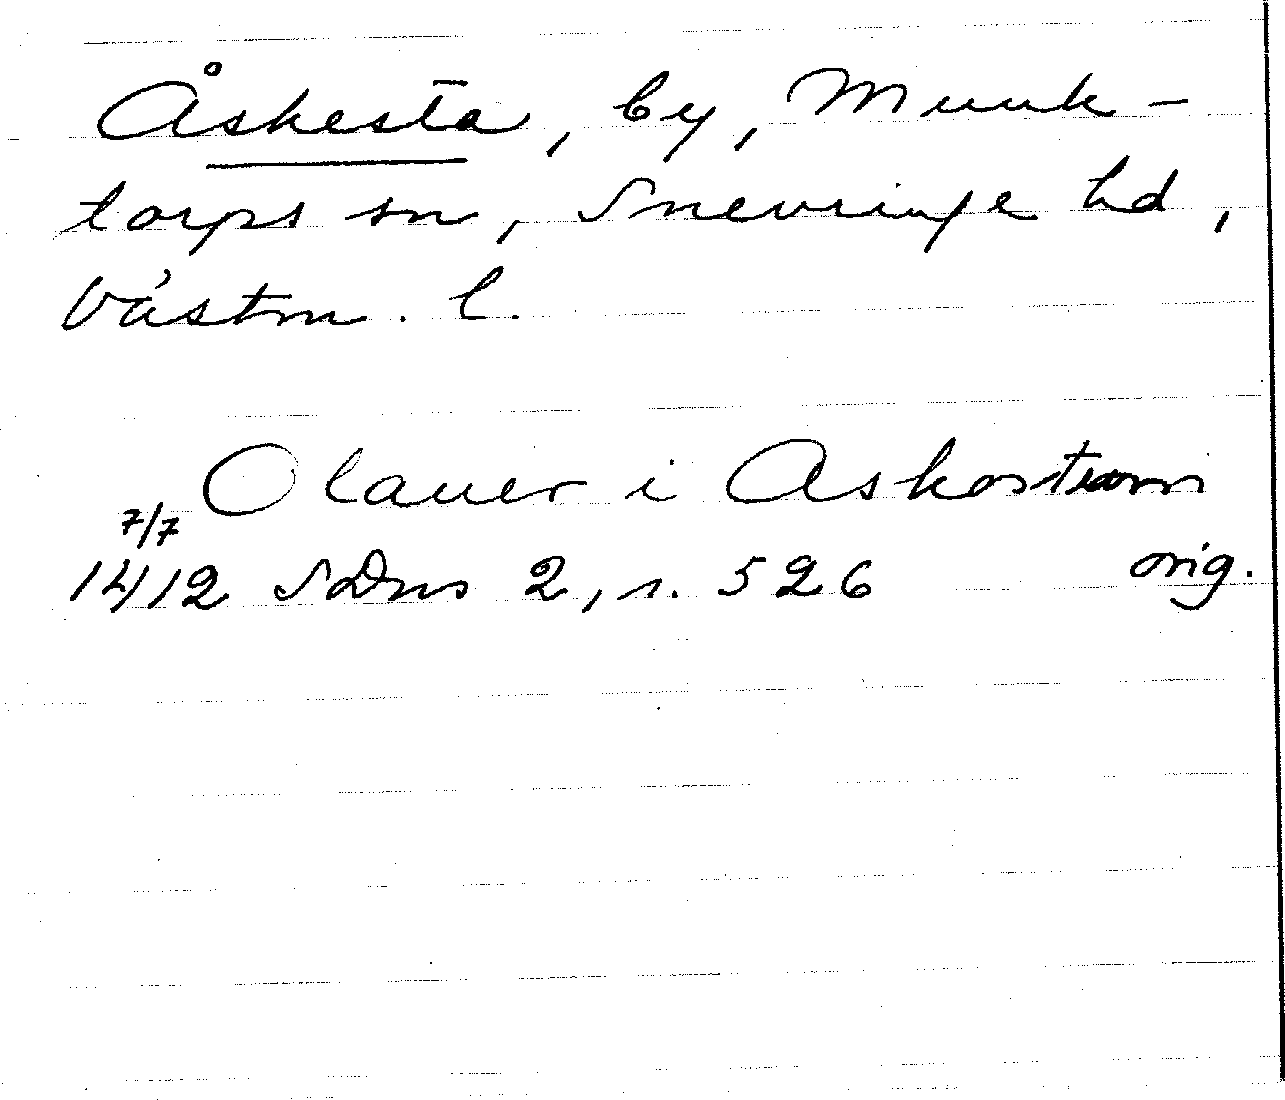 Åskesta, by, Munk-
torps sn, Snevringe hd,
Västm. l.
Olauer i Askostum
7/7
1412 SDns 2, s. 526 orig.